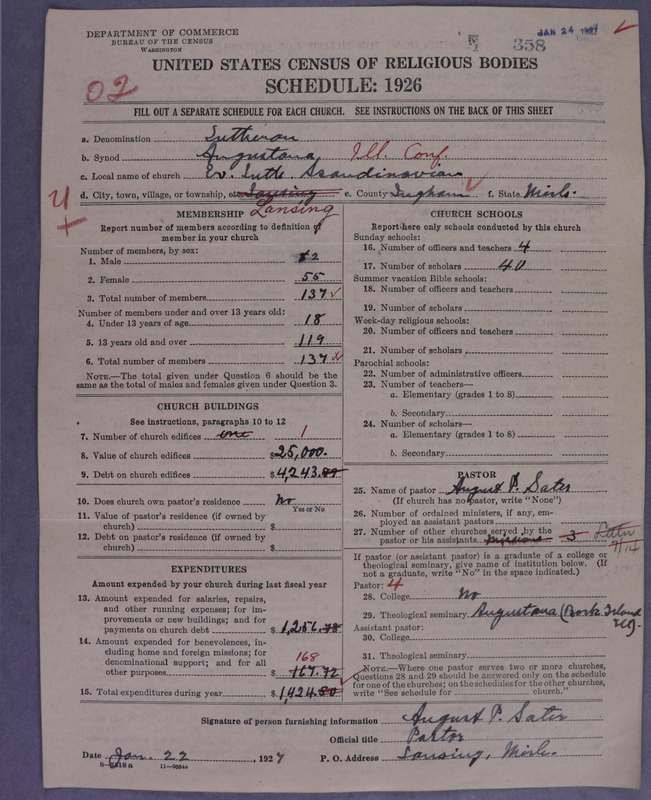 DEPARTMENT OF COMMERCE
BUREAU OF THE CENSUS
WASHINGTON
JAN 24 1927
358
UNITED STATES CENSUS OF RELIGIOUS BODIES
SCHEDULE: 1926
02
FILL OUT A SEPARATE SCHEDULE FOR EACH CHURCH. SEE INSTRUCTIONS ON THE BACK OF THIS SHEET
a. Denomination Lutheran
b. Synod Augustana Ill. Conf.
c. Local name of church Ev. Luth. Scandinavian
d. City, town, village, or township, etc. Lansing e. County Ingham f. State Mich.
Lansing
MEMBERSHIP
Report number of members according to definition of member in your church
Number of members, by sex:
1. Male 82
2. Female 55
3. Total number of members 137
Number of members under and over 13 years old:
4. Under 13 years of age 18
5. 13 years old and over 119
6. Total number of members 137
NOTE.—The total given under Question 6 should be the same as the total of males and females given under Question 3.
CHURCH BUILDINGS
See instructions, paragraphs 10 to 12
7. Number of church edifices one 1
8. Value of church edifices $25,000.
9. Debt on church edifices $4,243.89
10. Does church own pastor's residence No
Yes or No
11. Value of pastor's residence (if owned by church) $
12. Debt on pastor's residence (if owned by church) $
EXPENDITURES
Amount expended by your church during last fiscal year
13. Amount expended for salaries, repairs, and other running expenses; for improvements or new buildings; and for payments on church debt $1,256.78
14. Amount expended for benevolences, including home and foreign missions; for denominational support; and for all other purposes 168
167.72
15. Total expenditures during year $1,424.50
CHURCH SCHOOLS
Report here only schools conducted by this church
Sunday schools:
16. Number of officers and teachers 4
17. Number of scholars 40
Summer vacation Bible schools:
18. Number of officers and teachers
19. Number of scholars
Week-day religious schools:
20. Number of officers and teachers
21. Number of scholars
Parochial schools:
22. Number of administrative officers
23. Number of teachers—
a. Elementary (grades 1 to 8)
b. Secondary
24. Number of scholars—
a. Elementary (grades 1 to 8)
b. Secondary
PASTOR
25. Name of pastor August P. Sater
(If church has no pastor, write "None")
26. Number of ordained ministers, if any, employed as assistant pastors
27. Number of other churches served by the pastor or his assistants missions 3 Letter
4/14
If pastor (or assistant pastor) is a graduate of a college or theological seminary, give name of institution below. (If not a graduate, write "No" in the space indicated.)
Pastor: 4
28. College No
29. Theological seminary Augustana (Rock Island Ill).
Assistant pastor:
30. College
31. Theological seminary
NOTE.—Where one pastor serves two or more churches, Questions 28 and 29 should be answered only on the schedule for one of the churches; on the schedules for the other churches, write "See schedule for church."
Signature of person furnishing information August P. Sater
Official title Pastor
Date Jan. 22, 1927 P. O. Address Lansing, Mich.
8—5118a 11—9684a